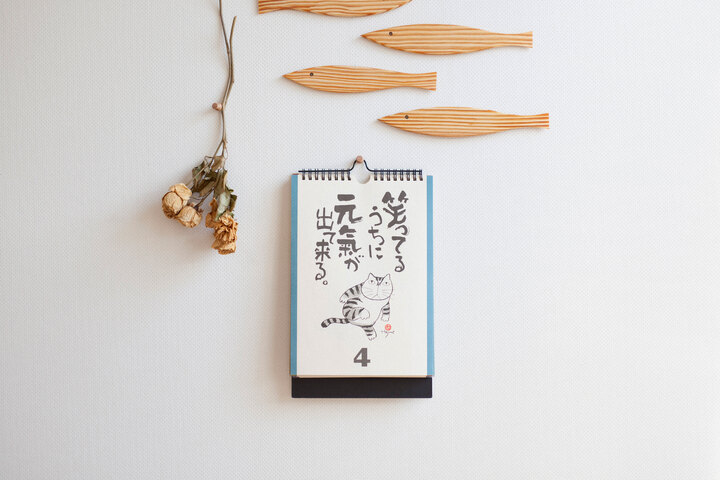 笑ってる
うちに
元氣が
出て来る。
4